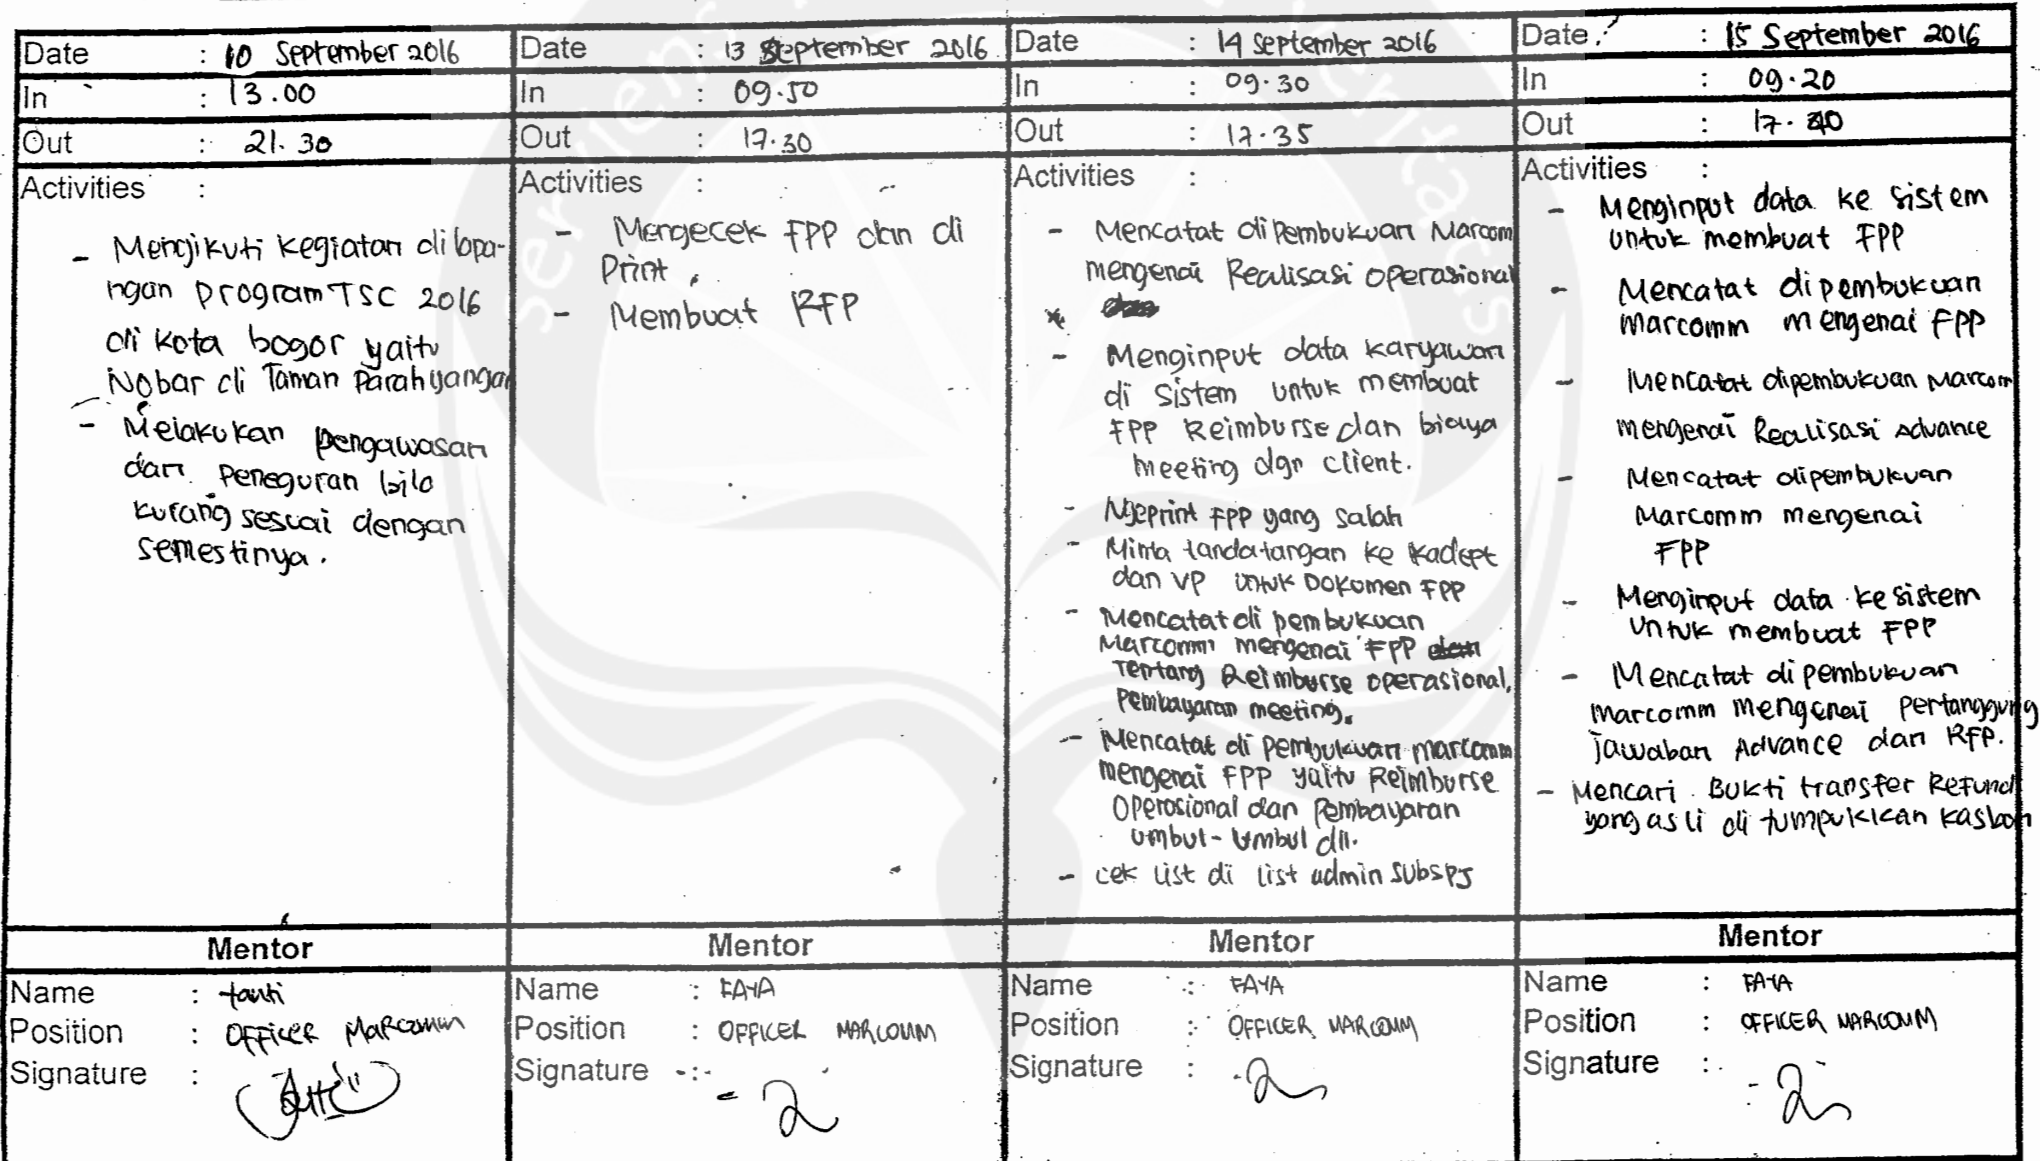 Date : 10 September 2016
In : 13.00
Out : 21.30
Activities :
- Mengikuti kegiatan di lapa-
ngan program TSC 2016
di kota bogor yaitu
Nobar di Taman Parahyangan
- Melakukan pengawasan
dan peneguran bila
kurang sesuai dengan
semestinya.
Mentor
Name : tanti
Position : OFFICER MARCOMM
Signature :
Date : 13 September 2016
In : 09.50
Out : 17.30
Activities :
- Mengecek FPP dan di
Print.
- Membuat RFP
Mentor
Name : FAYA
Position : OFFICER MARCOMM
Signature :
Date : 14 September 2016
In : 09.30
Out : 17.35
Activities :
- Mencatat di Pembukuan Marcom
mengenai Realisasi operasional
- Menginput data karyawan
di Sistem untuk membuat
FPP Reimburse dan biaya
meeting dgn client.
- Ngeprint FPP yang salah
- Minta tandatangan ke Kadept
dan VP untuk Dokumen FPP
- Mencatat di pembukuan
Marcomm mengenai FPP
Tentang Reimburse operasional,
Pembayaran meeting.
- Mencatat di pembukuan marcomm
mengenai FPP yaitu Reimburse
Operasional dan Pembayaran
umbul-umbul dll.
- cek list di list admin SUBSPJ
Mentor
Name : FAYA
Position : OFFICER MARCOMM
Signature :
Date : 15 September 2016
In : 09.20
Out : 17.40
Activities :
- Menginput data ke sistem
untuk membuat FPP
- Mencatat dipembukuan
Marcomm mengenai FPP
- Mencatat dipembukuan Marcom
mengenai Realisasi Advance
- Mencatat dipembukuan
Marcomm mengenai
FPP
- Menginput data ke sistem
untuk membuat FPP
- Mencatat di pembukuan
Marcomm mengenai Pertanggung
jawaban Advance dan RFP.
- Mencari Bukti transfer Refund
yang asli di tumpukkan kasbon
Mentor
Name : FAYA
Position : OFFICER MARCOMM
Signature :